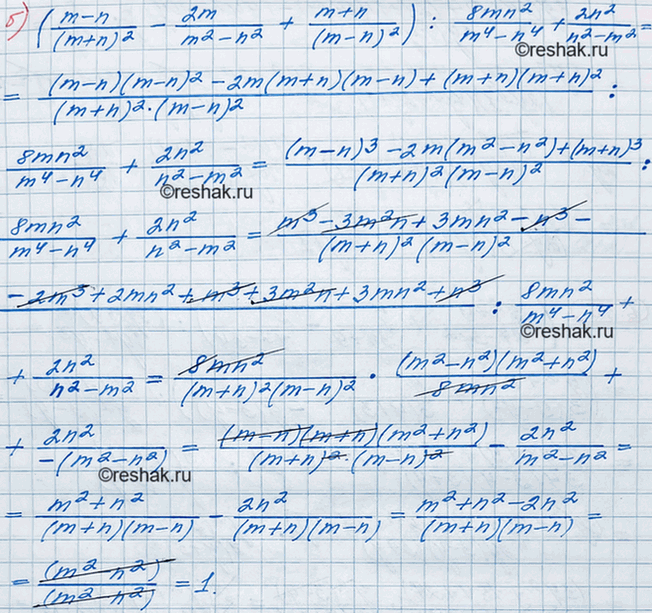 б) ((m-n)/(m+n)² - 2m/(m²-n²) + (m+n)/(m-n)²) : 8mn²/(m⁴-n⁴) + 2n²/(n²-m²) =
©reshak.ru
= ((m-n)(m-n)² - 2m(m+n)(m-n) + (m+n)(m+n)²)/((m+n)²·(m-n)²) :
8mn²/(m⁴-n⁴) + 2n²/(n²-m²) = ((m-n)³ - 2m(m²-n²) + (m+n)³)/((m+n)²(m-n)²) :
©reshak.ru
8mn²/(m⁴-n⁴) + 2n²/(n²-m²) = (m³ - 3m²n + 3mn² - n³ -)/((m+n)²(m-n)²)
- 2m³ + 2mn² + m³ + 3m²n + 3mn² + n³ : 8mn²/(m⁴-n⁴) +
©reshak.ru
+ 2n²/(n²-m²) = 8mn²/((m+n)²(m-n)²) · (m²-n²)(m²+n²)/(8mn²) +
+ 2n²/(-(m²-n²)) = (m-n)(m+n)(m²+n²)/((m+n)²·(m-n)²) - 2n²/(m²-n²) =
©reshak.ru
= (m²+n²)/((m+n)(m-n)) - 2n²/((m+n)(m-n)) = (m²+n²-2n²)/((m+n)(m-n)) =
= (m²-n²)/(m²-n²) = 1.
©reshak.ru